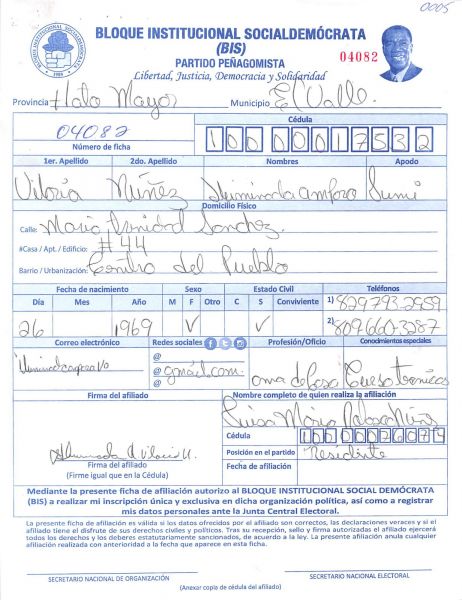 0005
BLOQUE INSTITUCIONAL SOCIALDEMÓCRATA
(BIS)
PARTIDO PEÑAGOMISTA
Libertad, Justicia, Democracia y Solidaridad
04082
BLOQUE INSTITUCIONAL SOCIALDEMOCRATA
Provincia Hato Mayor Municipio El Valle.
04082
Número de ficha
Cédula
10000017532
1er. Apellido 2do. Apellido Nombres Apodo
Vitoria Núñez Iluminada amparo
Domicilio Físico
Calle: Maria Trinidad Sanchez.
#Casa / Apt. / Edificio: #44
Barrio / Urbanización: Centro del Pueblo
Fecha de nacimiento Sexo Estado Civil Teléfonos
Día Mes Año M F Otro C S Conviviente 1) 829 793-2959
26 1969 V V 2) 809 660-3287
Correo electrónico Redes sociales Profesión/Oficio Conocimientos especiales
@
@ gmail.com
@
ama de Casa Curso tecnicos
Firma del afiliado Nombre completo de quien realiza la afiliación
Maria
Cédula 10000076079
Posición en el partido
Firma del afiliado
(Firme igual que en la Cédula)
Fecha de afiliación
Mediante la presente ficha de afiliación autorizo al BLOQUE INSTITUCIONAL SOCIAL DEMÓCRATA
(BIS) a realizar mi inscripción única y exclusiva en dicha organización política, así como a registrar
mis datos personales ante la Junta Central Electoral.
La presente ficha de afiliación es válida si los datos ofrecidos por el afiliado son correctos, las declaraciones veraces y si el
afiliado tiene el disfrute de sus derechos civiles y políticos. Tras su recepción, sello y firma autorizadas el afiliado ejercerá
todos los derechos y los deberes estatutariamente sancionados, de acuerdo a la ley. La presente afiliación anula cualquier
afiliación realizada con anterioridad a la fecha que aparece en esta ficha.
SECRETARIO NACIONAL DE ORGANIZACIÓN SECRETARIO NACIONAL ELECTORAL
(Anexar copia de cédula del afiliado)